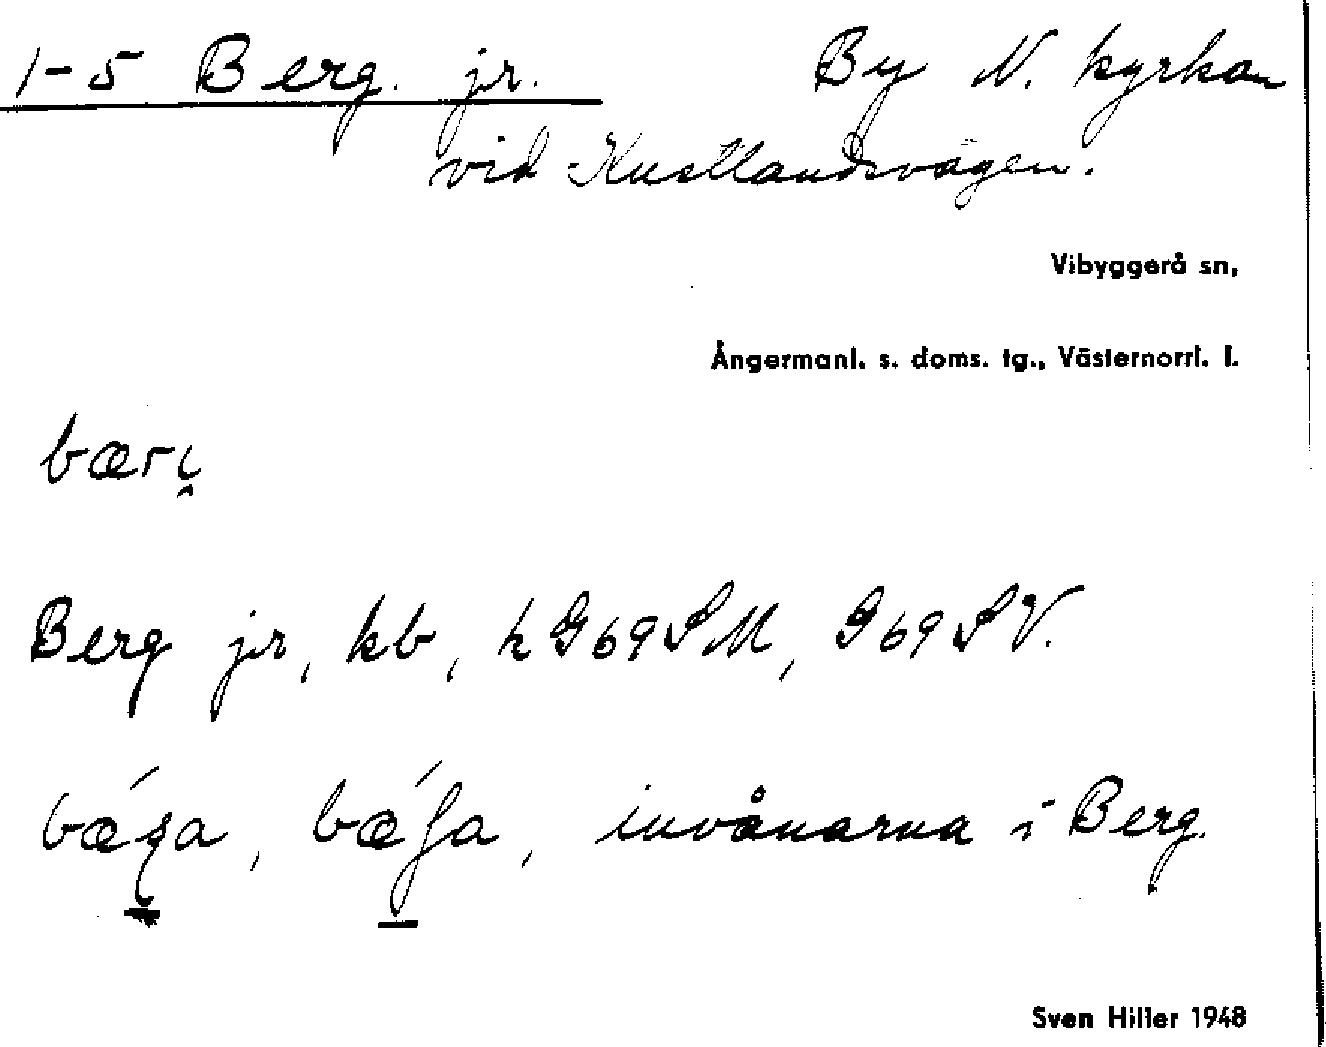 1-5 Berg. jr. By N. kyrkan
vid Kustlandsvägen.
Vibyggerå sn,
Ångermanl. s. doms. tg., Västernorrl. l.
bæri̭
Berg jr, kb, h G69SM, G69SV.
invånarna i Berg.
Sven Hiller 1948